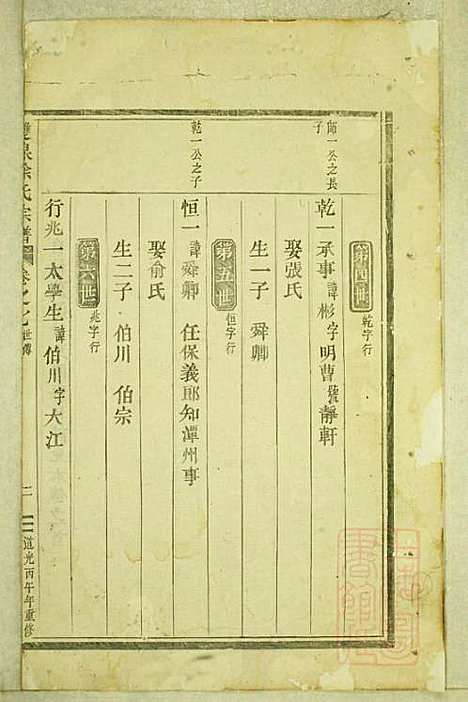 第四世 乾字行
師一公之長子
乾一承事 諱彬字明曹號靜軒
娶張氏
生一子 舜卿
第五世 恒字行
乾一公之子
恒一 諱舜卿 任保義郎知潭州事
娶俞氏
生二子 伯川 伯宗
第六世 兆字行
行兆一太學生 諱伯川字大江
徐氏宗譜 卷之七 世傳 二 道光丙午年重修